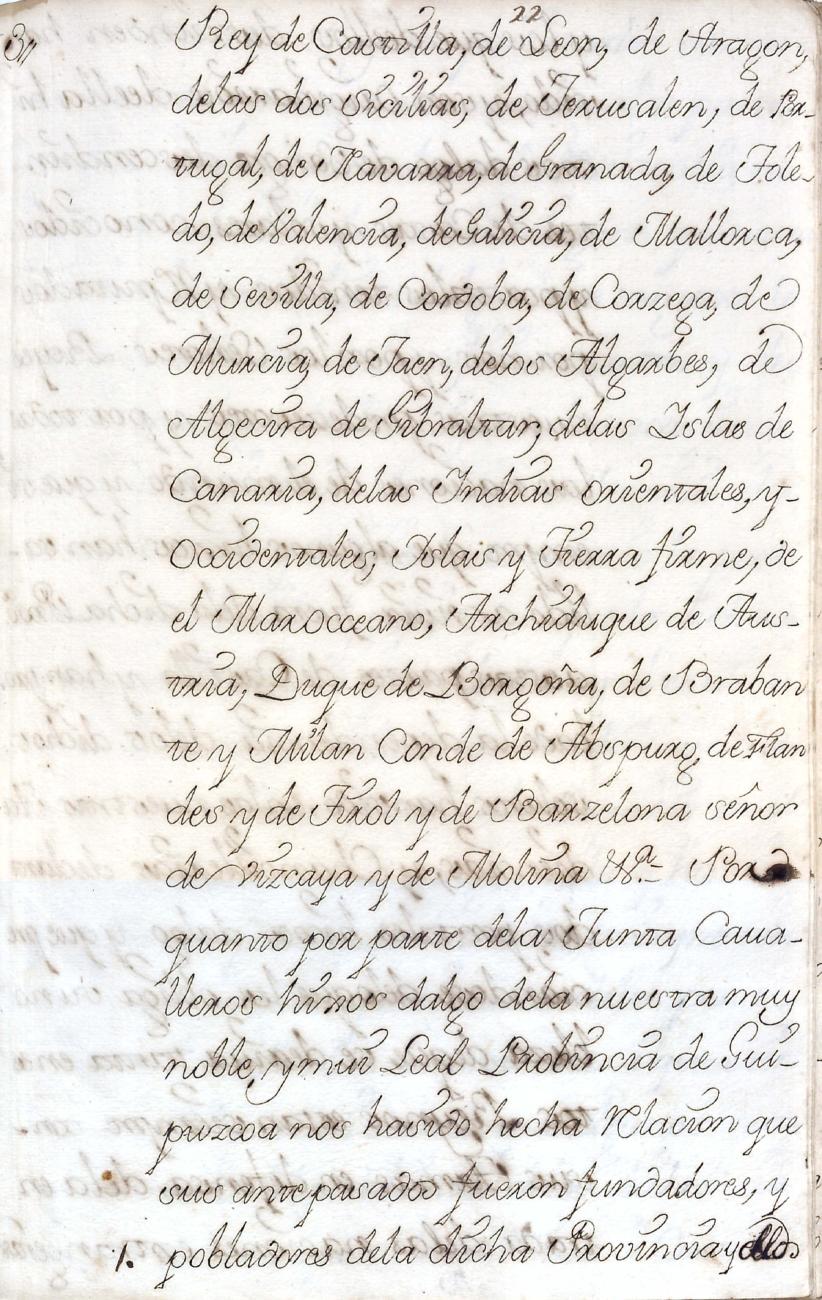 22
3
Rey de Castilla, de Leon, de Aragon,
delas dos Sicilias, de Jerusalen, de Por-
tugal, de Navarra, de Granada, de Tole-
do, de Valencia, de Galicia, de Mallorca,
de Sevilla, de Cordoba, de Corzega, de
Murcia, de Jaen, delos Algarbes, de
Algecira de Gibraltar, delas Yslas de
Canaria, delas Indias orientales, y-
Occidentales, Islas y Tierra firme, de
el Mar Occeano, Archiduque de Aus-
tria, Duque de Borgoña, de Braban
te y Milan Conde de Abspurg, de Flan
des y de Tirol y de Barzelona señor
de vizcaya y de Molina &ª Por
quanto por parte dela Junta Caua-
lleros hixos dalgo dela nuestra muy
noble, y mui Leal Probincia de Gui-
puzcoa nos hasido hecha relacion que
sus antepasados fueron fundadores, y
1. pobladores dela dicha Provincia y ellos